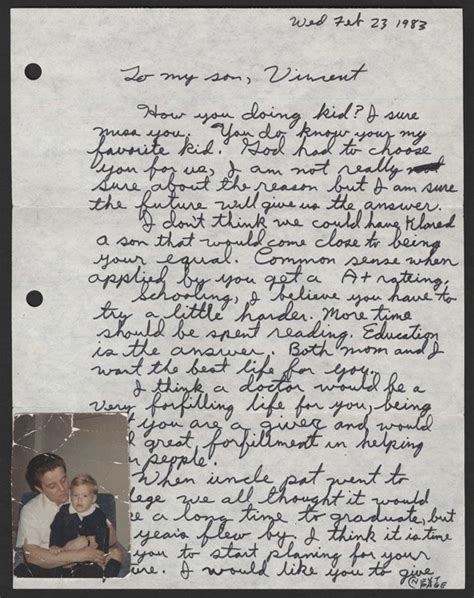 Wed Feb 23 1983
To my son, Vincent
How you doing kid? I sure
miss you. You do know your my
favorite kid. God had to choose
you for us, I am not really
sure about the reason but I am sure
the future will give us the answer.
I don't think we could have kloned
a son that would come close to being
your equal. Common sense when
applied by you get a A+ rateing.
Schooling, I believe you have to
try a little harder. More time
should be spent reading. Education
is the answer. Both mom and I
want the best life for you.
I think a doctor would be a
very forfilling life for you, being
you are a giver and would
great, forfillment in helping
people.
When uncle pat went to
we all thought it would
a long time to graduate, but
years flew by. I think it is time
you to start planning for your
I would like you to give
NEXT
PAGE